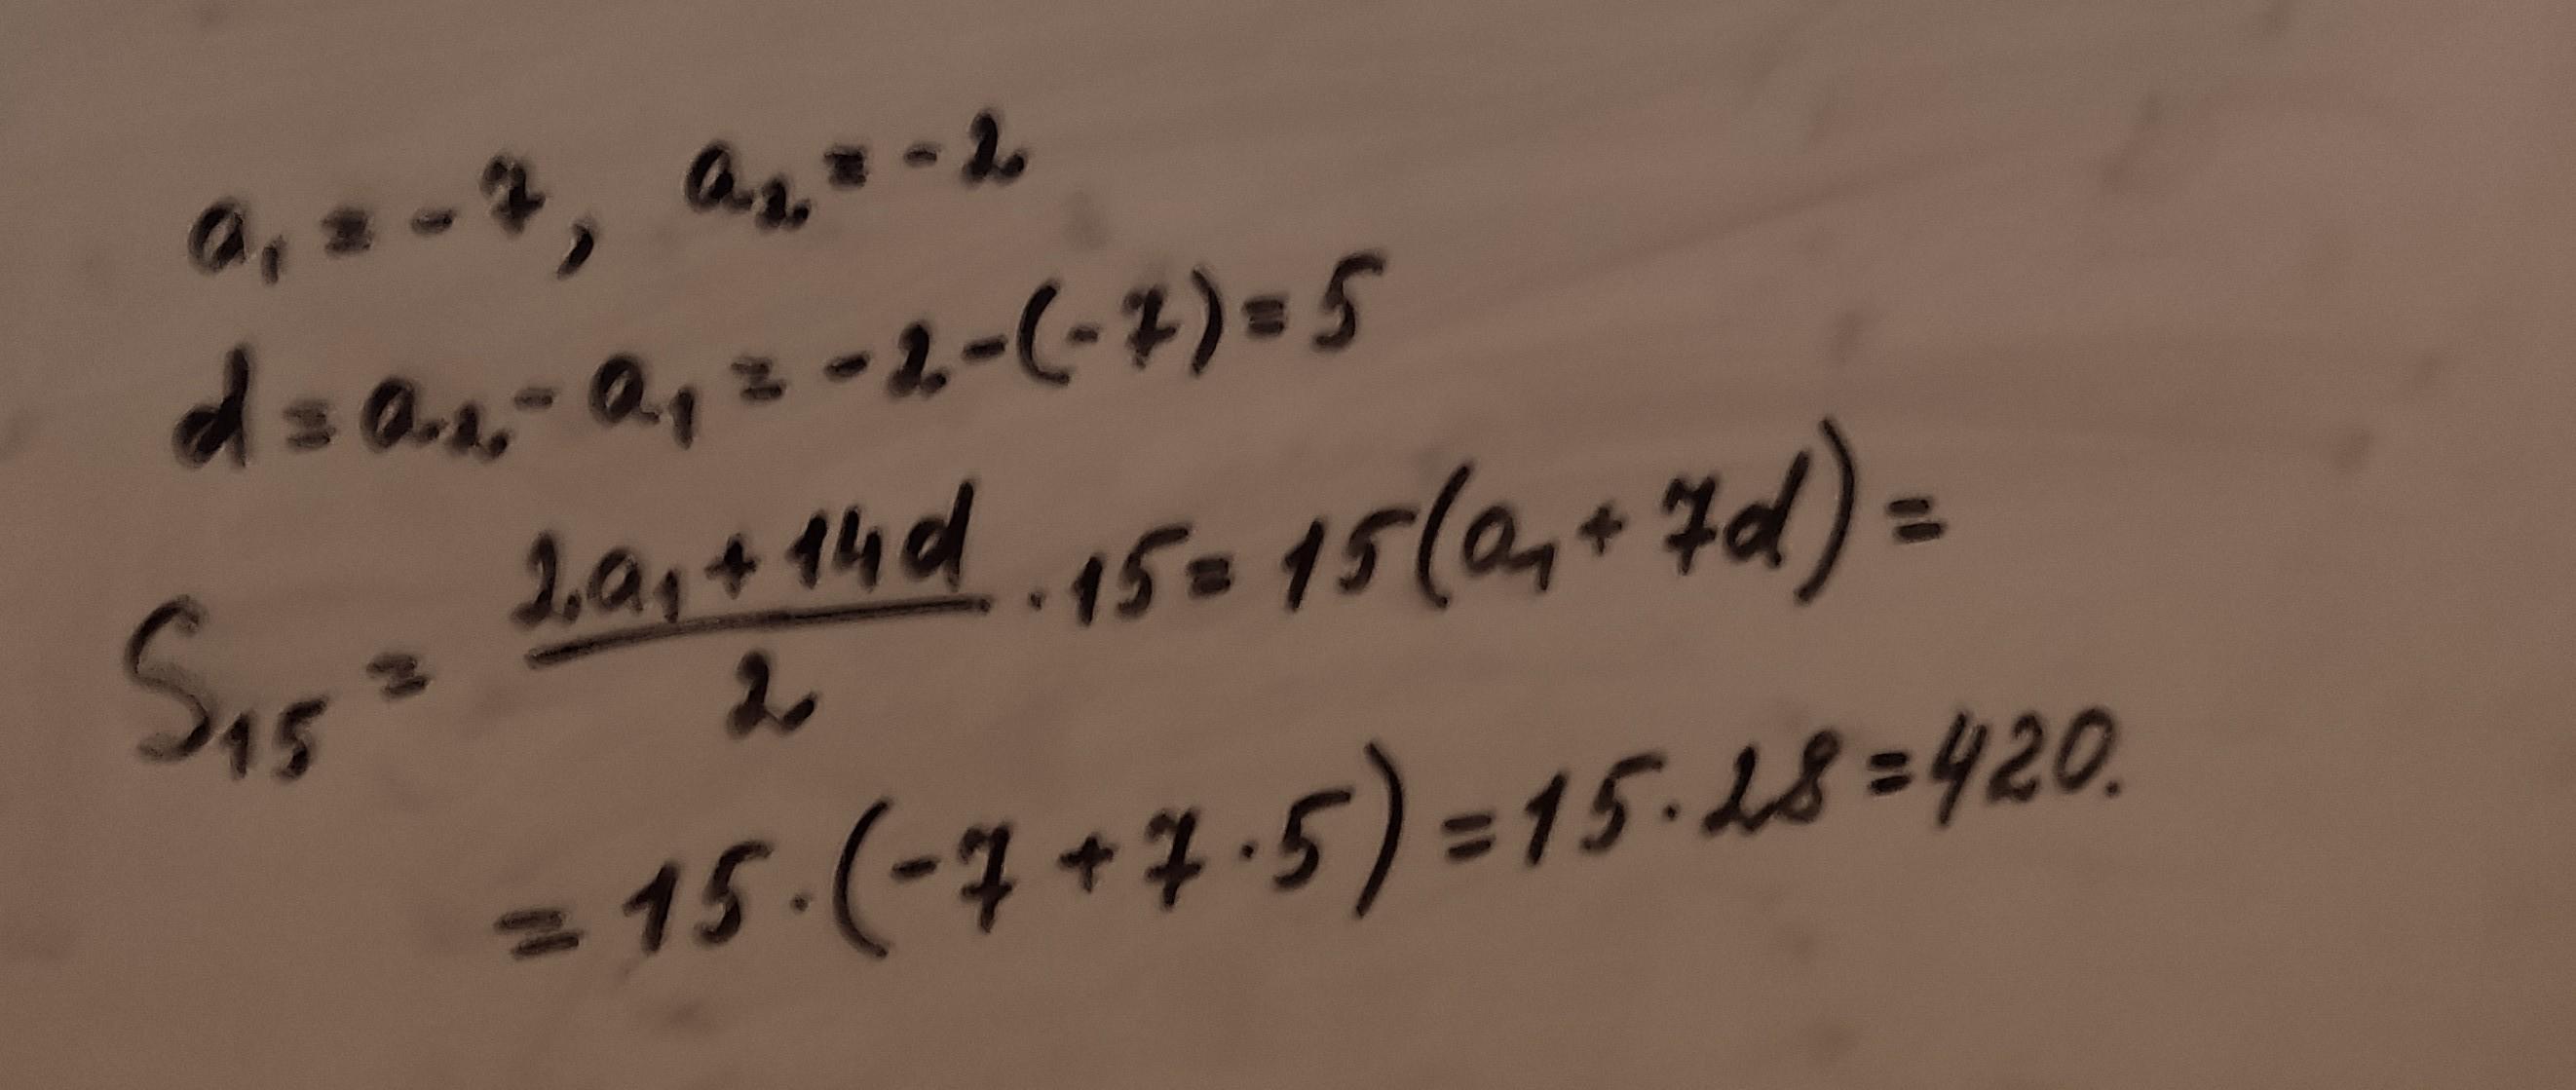 a₁ = -7, a₂ = -2
d = a₂ - a₁ = -2 - (-7) = 5
S₁₅ = (2a₁ + 14d)/2 · 15 = 15(a₁ + 7d) =
= 15 · (-7 + 7 · 5) = 15 · 28 = 420.